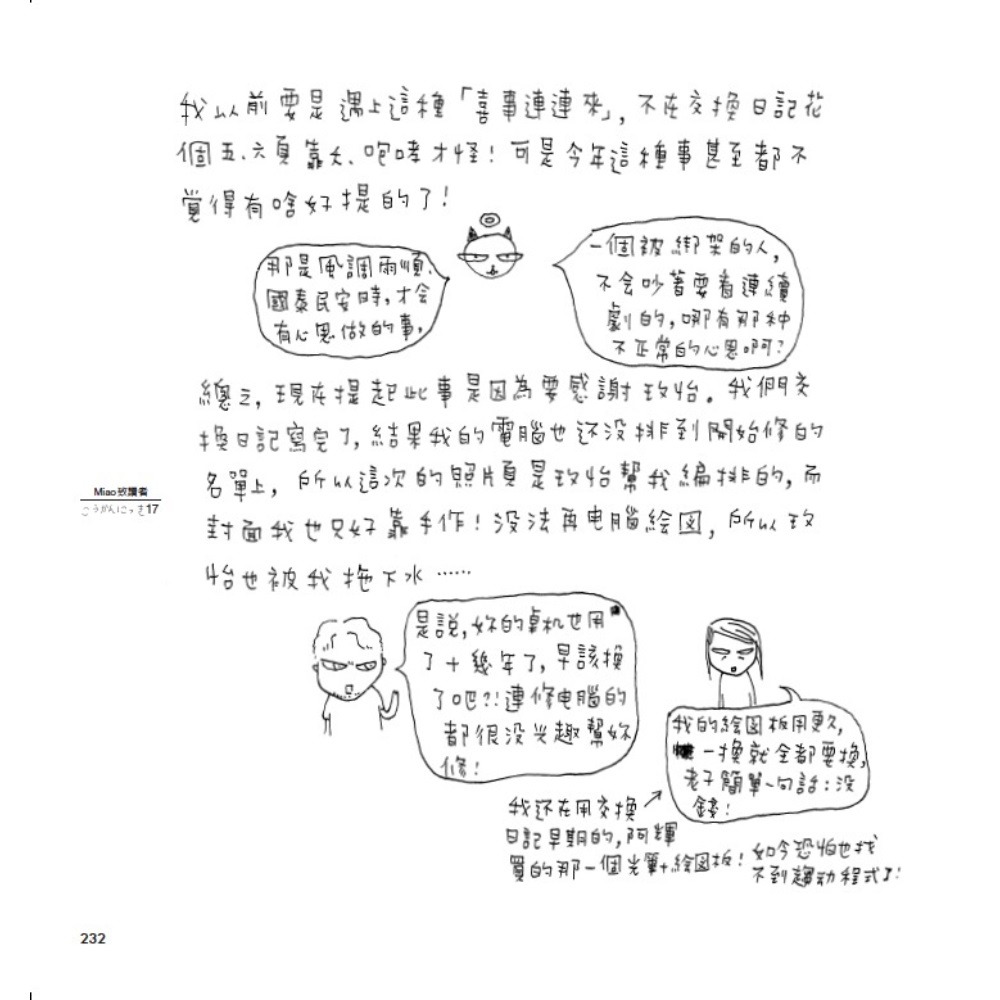 我以前要是遇上這種「喜事連連來」,不在交換日記花
個五、六頁靠夭、咆哮才怪!可是今年這種事甚至都不
覺得有啥好提的了!
那是風調雨順、
國泰民安時,才会
有心思做的事。
一個被綁架的人,
不会吵著要看連續
劇的,哪有那种
不正常的心思啊?
總之,現在提起此事是因為要感謝玫怡。我們交
換日記寫完了,結果我的電腦也还没排到開始修的
名單上,所以這次的照片頁是玫怡幫我編排的,而
封面我也只好靠手作!没法再电腦絵図,所以玫
怡也被我拖下水……
Miao致讀者
こうかんにっき17
是説,妳的桌机也用
了十幾年了,早該換
了吧?!連修电腦的
都很没兴趣幫妳
修!
我的絵図板用更久,
一換就全都要換,
老子簡單一句話:没
錢!
我还在用交換
日記早期的,阿輝
買的那一個光筆+絵図板!
如今恐怕也找
不到趨动程式了!
232